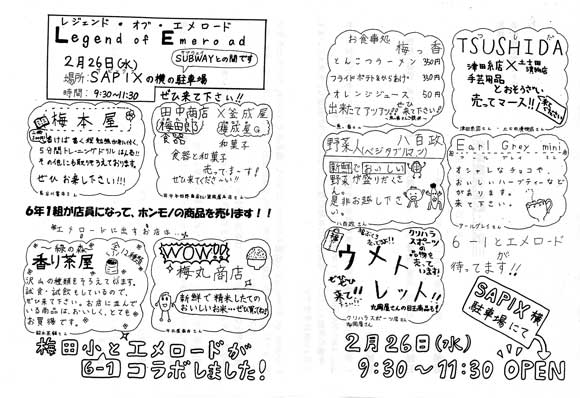 レジェンド・オブ・エメロード
Legend of Emeroad
SUBWAYとの間です
2月26日(水)
場所:SAPIXの横の駐車場
時間:9:30~11:30
ぜひ来て下さい!!
梅本屋
5分間トレーニングドリル
ぜひ お楽しみ下さい!!!
田中商店×釜成屋
梅田郎
権成屋G
食器
和菓子
食器と和菓子
売ってまーす!
ぜひ来てください!!
6年1組が店員になって、ホンモノの商品を売ります!!
エメロードに出すお店は…
~緑の森~
全12種類
香り茶屋
沢山の種類をそろえてます。
試食・試飲もしているので、
ぜひ来て下さい。お店に並んで
いる商品は、おいしく、とても
お買得です。
WOW
梅丸商店
新鮮で精米したての
おいしいお米…ぜひ買ってね♪
梅田小とエメロードが
6-1 コラボしました!
お食事処
梅っ香
とんこつラーメン 350円
フライドポテト&からあげ 350円
オレンジジュース 50円
出来たてアツアツ!ぜひ来て下さい!
TSUSHIDA
津田糸店×土士田漬物店
手芸用品
とおそうざい
売ってマース!!
野菜人(ベジタブルマン)
八百政
新鮮でおいしい
野菜が盛りだくさん。
是非お越し下さい。
Earl Grey mini
オシャレなチョコや、
おいしいハーブティーなど
があります。
来て下さい。
6-1とエメロード
が
待ってます!!
ウメトレット!!
クリハラスポーツの品物を売っています!
ぜひ来て
丸岡屋さんの目玉商品も!
SAPIX横
駐車場にて
2月26日(水)
9:30~11:30 OPEN